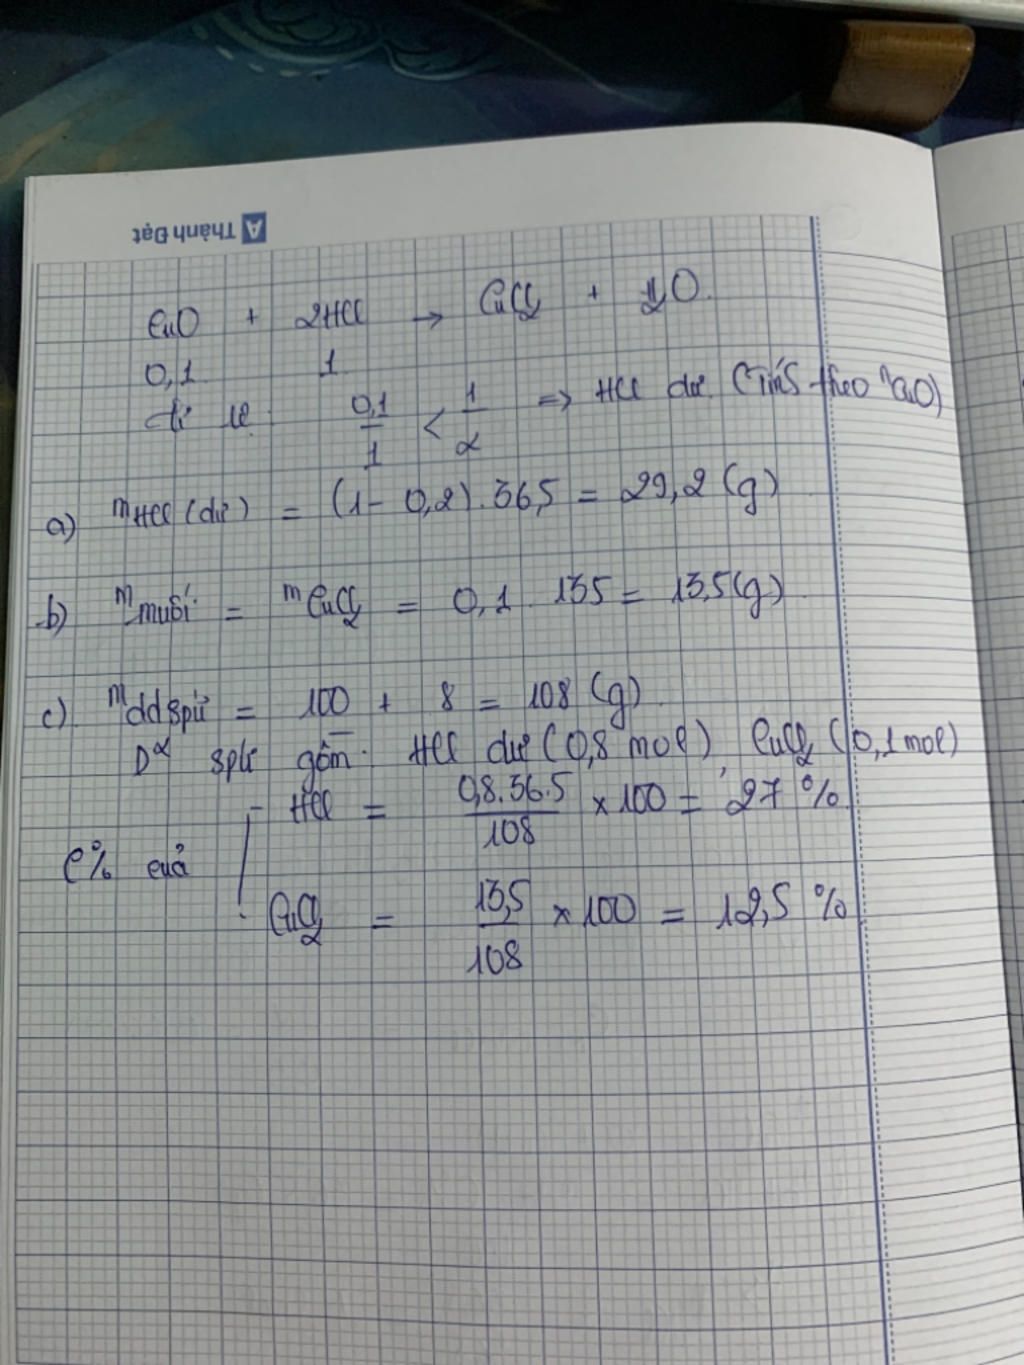 A Thành Đạt
CuO + 2HCl → CuCl2 + H2O.
0,1 1
tỉ lệ: 0,1/1 < 1/2 => HCl dư (Tính theo nCuO)
a) mHCl (dư) = (1 - 0,2) . 36,5 = 29,2 (g)
b) mmuối = mCuCl2 = 0,1 . 135 = 13,5 (g)
c) mdd spứ = 100 + 8 = 108 (g)
Dd spứ gồm: HCl dư (0,8 mol), CuCl2 (0,1 mol)
- HCl = 0,8.36.5/108 × 100 = 27 %
C% của
CuCl2 = 13,5/108 × 100 = 12,5 %